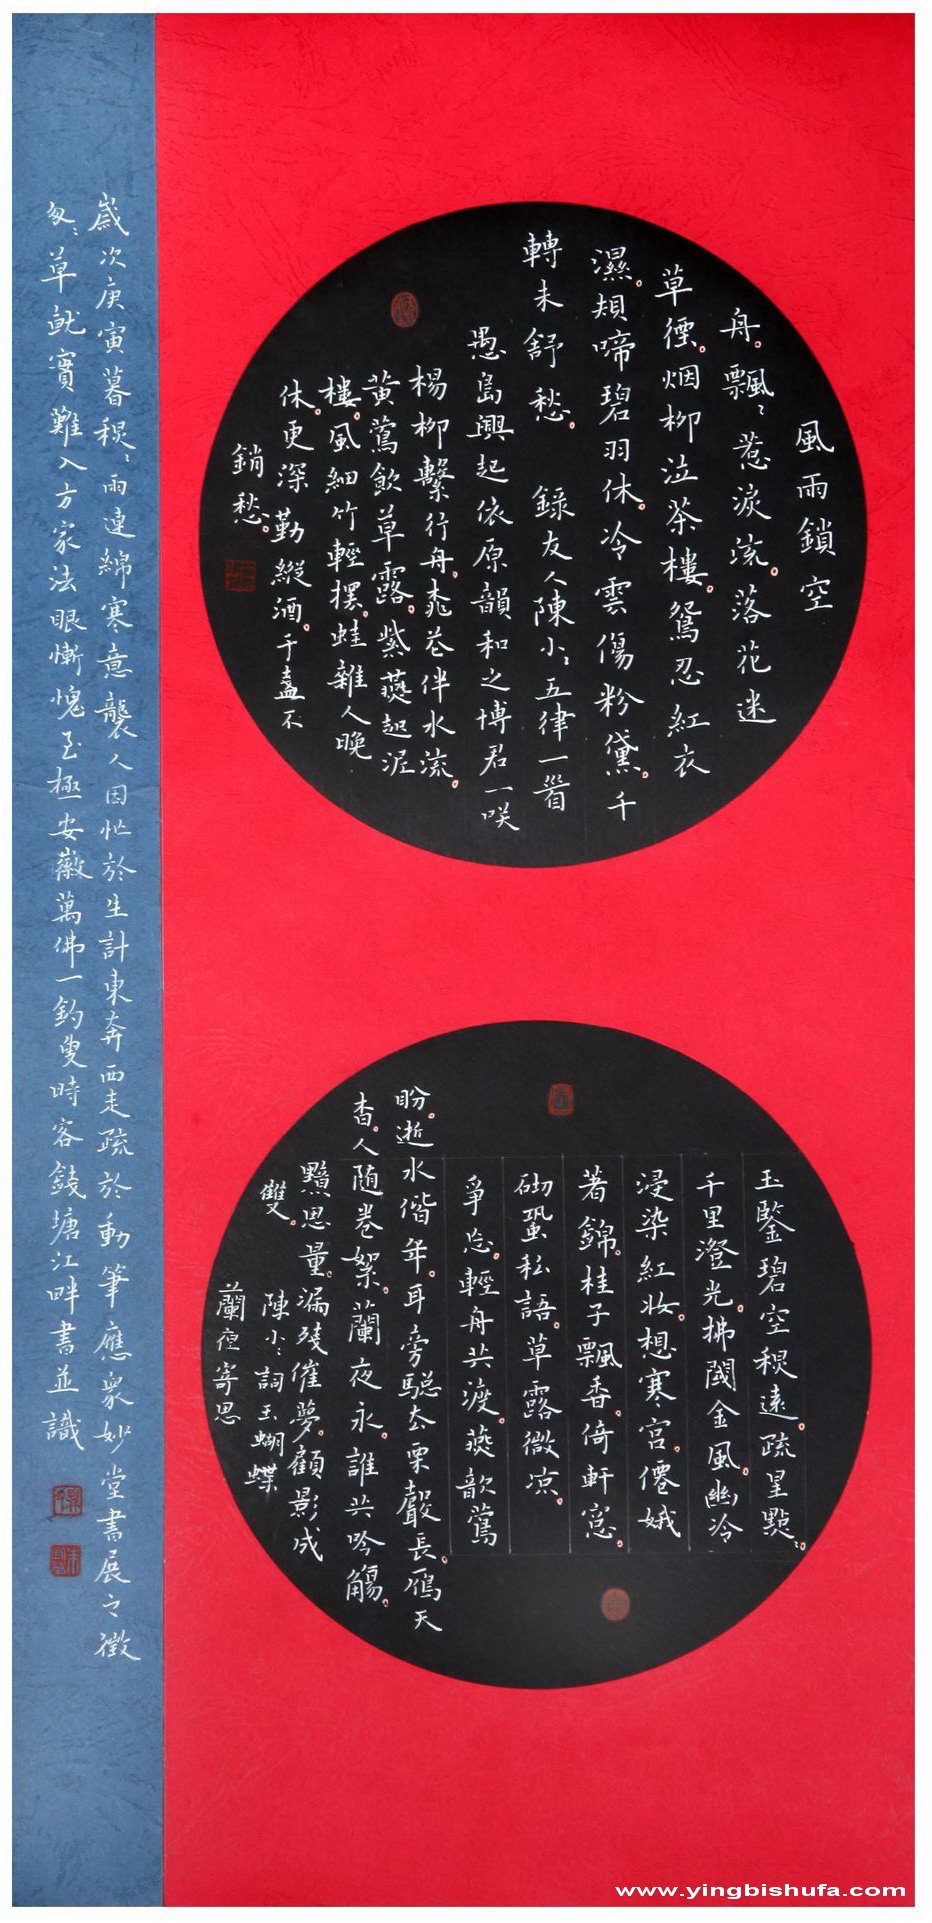 風雨鎖空
舟。飄〻惹淚流。落花迷
草徑。烟柳泣茶樓。鴛忍紅衣
濕。頰啼碧羽休。冷雲傷粉黛。千
轉未舒愁。 錄友人陳小〻五律一首
愚島興起依原韻和之博君一咲
楊柳繫行舟。桃花伴水流。
黃鶯飲草露。紫燕起泥
樓。風細竹輕擺。蛙雜人晚
休。更深勤縱酒。千盞不
銷愁。
玉鑒碧空秋遠。疏星點〻。
千里澄光。拂閣金風。幽冷
浸染紅妝。想寒宮。僊娥
著錦。桂子飄香。倚軒窗。
砌蛩私語。草露微涼。
爭忘。輕舟共渡。燕歆鶯
盼。逝水偕年。耳旁聽去聲長。雁天
杳。人随卷絮。蘭夜永。誰共吟觴。
黯思量。漏殘催夢。顧影成
雙。 陳小〻詞玉蝴蝶
蘭夜寄思
歲次庚寅暮秋〻雨連綿寒意襲人因忙於生計東奔西走疏於動筆應眾妙堂書展之徵
匆〻草就實難入方家法眼慚愧至極安徽萬佛一釣叟時客錢塘江畔書並識
www.yingbishufa.com